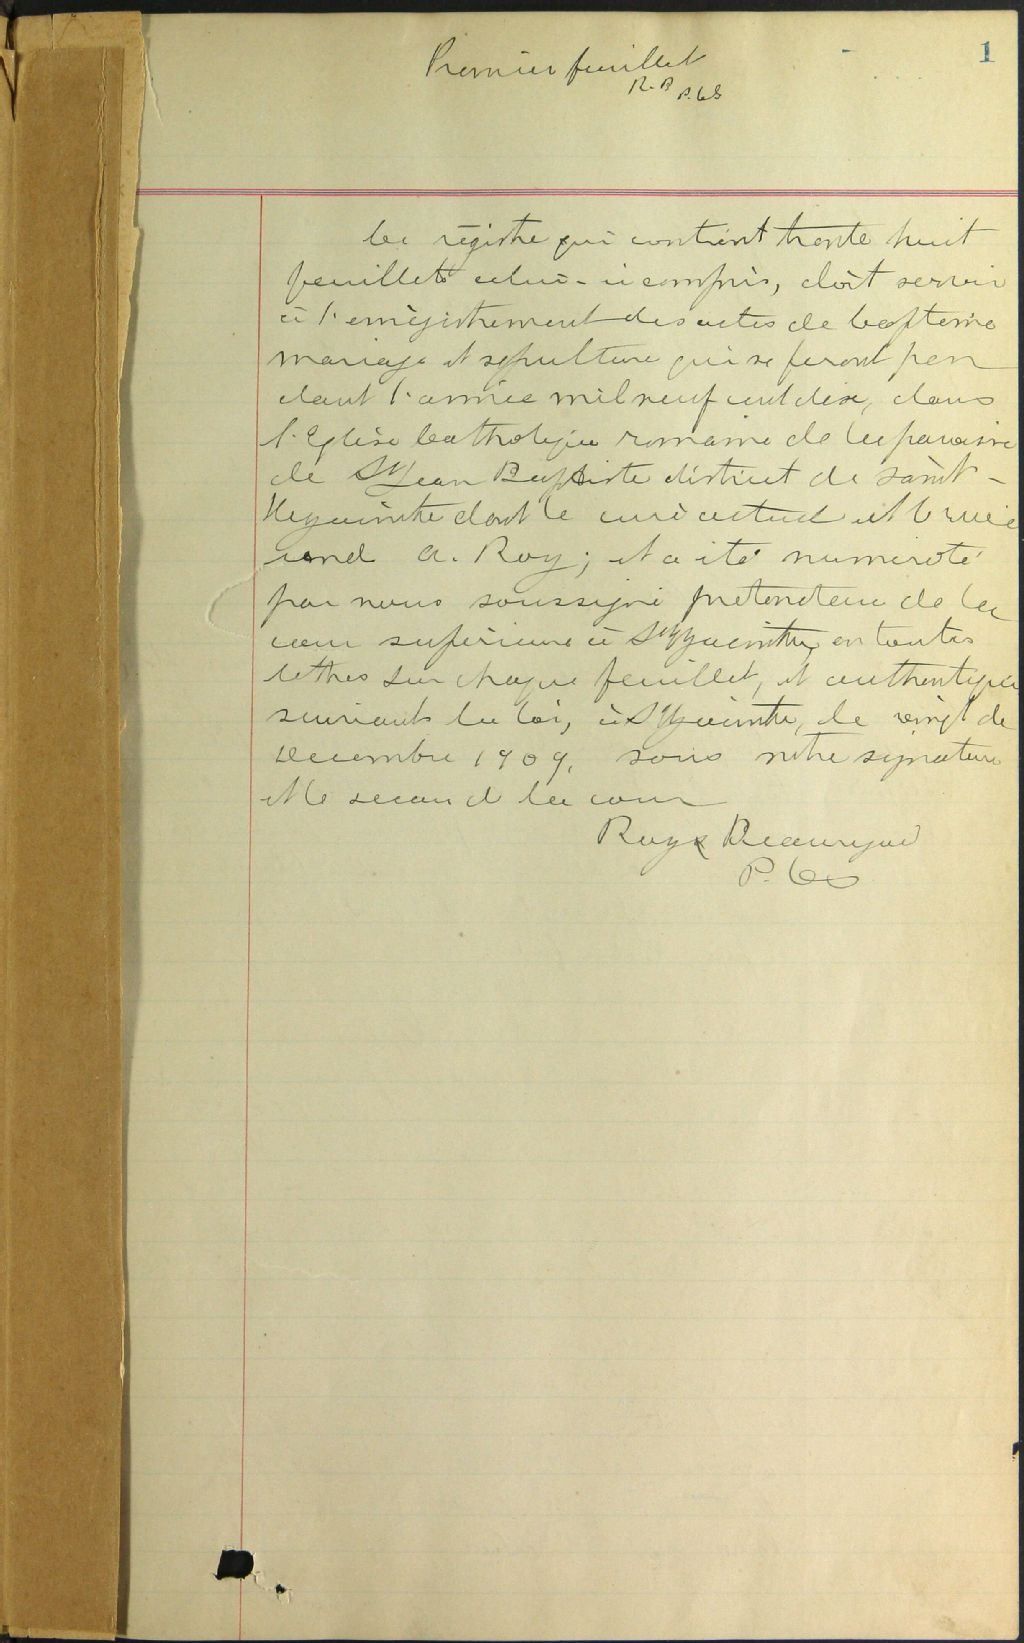 1
Premier feuillet
R. B P. C S
Ce régistre qui contient trente huit
feuillets celui-ci compris, doit servir
à l'enrégistrement des actes de baptême
mariage et sépulture qui se feront pen
dant l'année mil neuf cent dix, dans
l'Eglise Catholique romaine de la paroisse
de St Jean Baptiste district de saint-
Hyacinthe dont le curé actuel est le révé
rend A. Roy; et a été numéroté
par nous soussigné protonotaire de la
cour supérieure à St Hyacinthe, en toutes
lettres sur chaque feuillet, et authentiqué
suivant la loi, à St Hyacinthe, le vingt de
décembre 1909, sous notre signature
et le sceau de la cour
Roy & Beauregard
P. C S